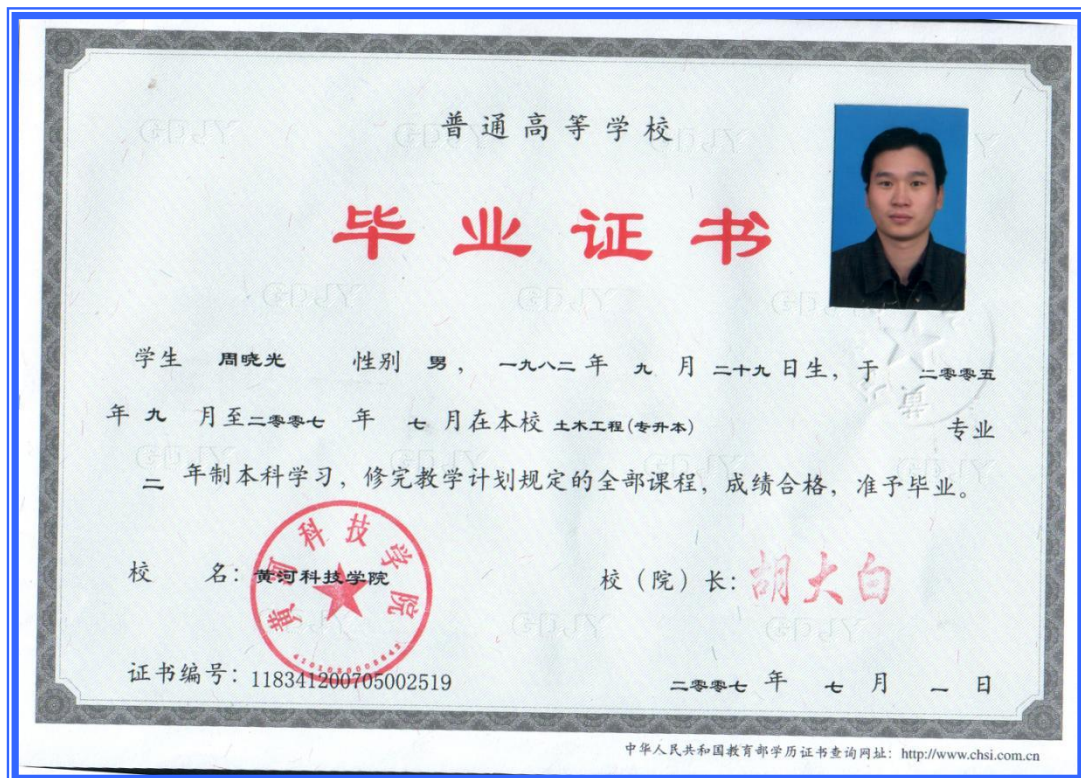 普通高等学校
毕业证书
学生 周晓光 性别 男，一九八二 年 九 月 二十九 日生，于 二零零五
年 九 月至 二零零七 年 七 月在本校 土木工程(专升本) 专业
二 年制本科学习，修完教学计划规定的全部课程，成绩合格，准予毕业。
黄河科技学院
校 名：黄河科技学院 校（院）长：胡大白
证书编号：118341200705002519 二零零七 年 七 月 一 日
中华人民共和国教育部学历证书查询网址：http://www.chsi.com.cn